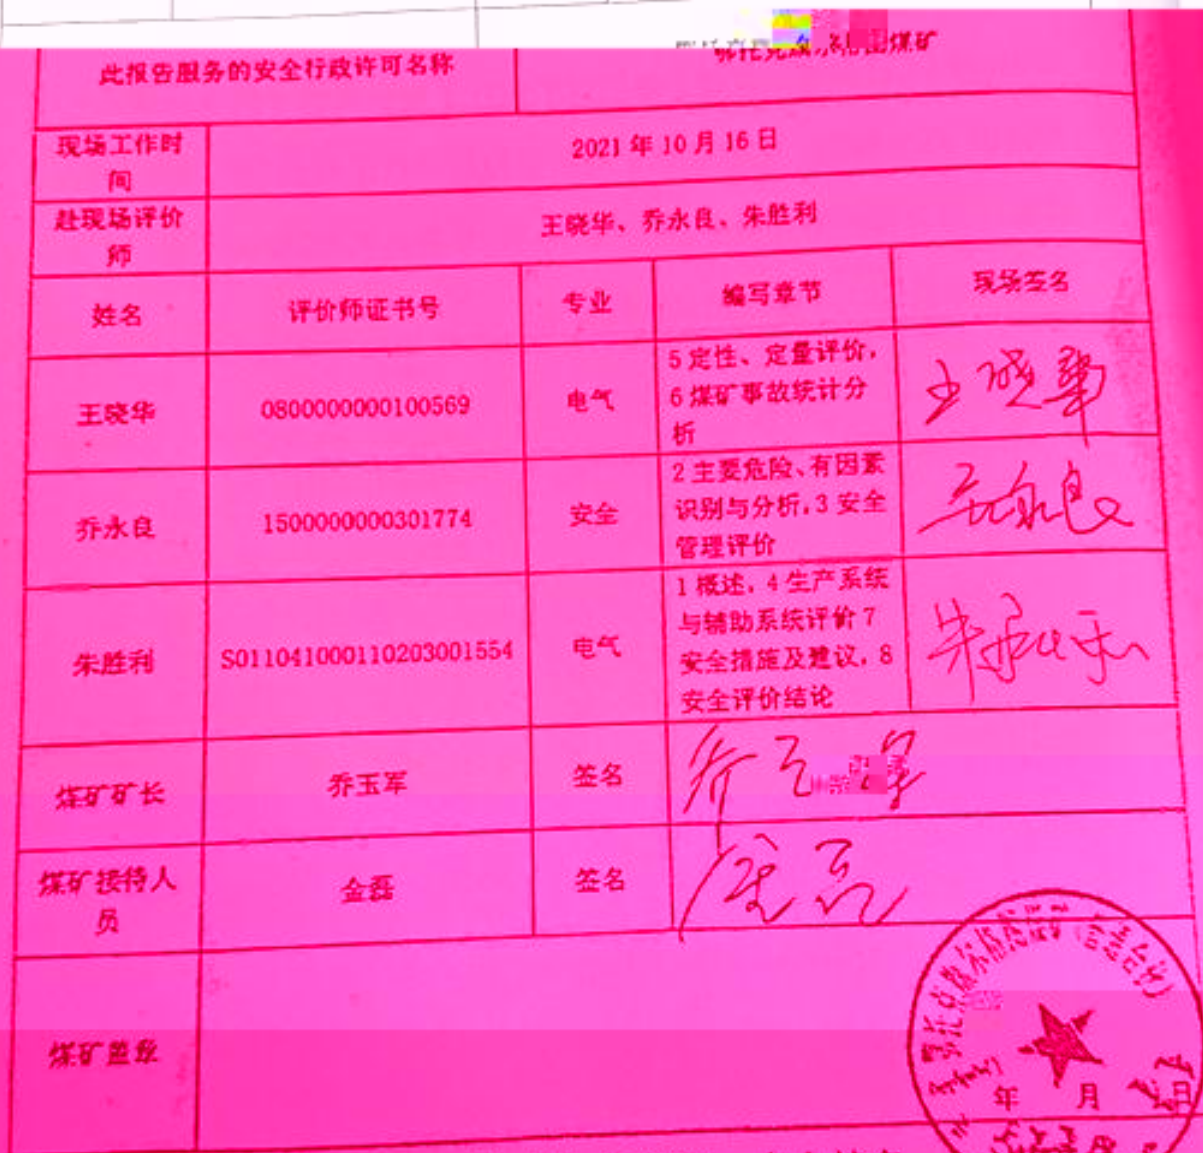 此报告服务的安全行政许可名称
煤矿
现场工作时
间
2021 年 10 月 16 日
赴现场评价
师
王晓华、乔永良、朱胜利
姓名 评价师证书号 专业 编写章节 现场签名
王晓华 0800000000100569 电气
5 定性、定量评价,
6 煤矿事故统计分
析
王晓华
乔永良 1500000000301774 安全
2 主要危险、有因素
识别与分析,3 安全
管理评价
乔永良
朱胜利 S011041000110203001554 电气
1 概述,4 生产系统
与辅助系统评价 7
安全措施及建议,8
安全评价结论
煤矿矿长 乔玉军 签名
煤矿接待人
员
金磊 签名
煤矿盖章
年 月 日